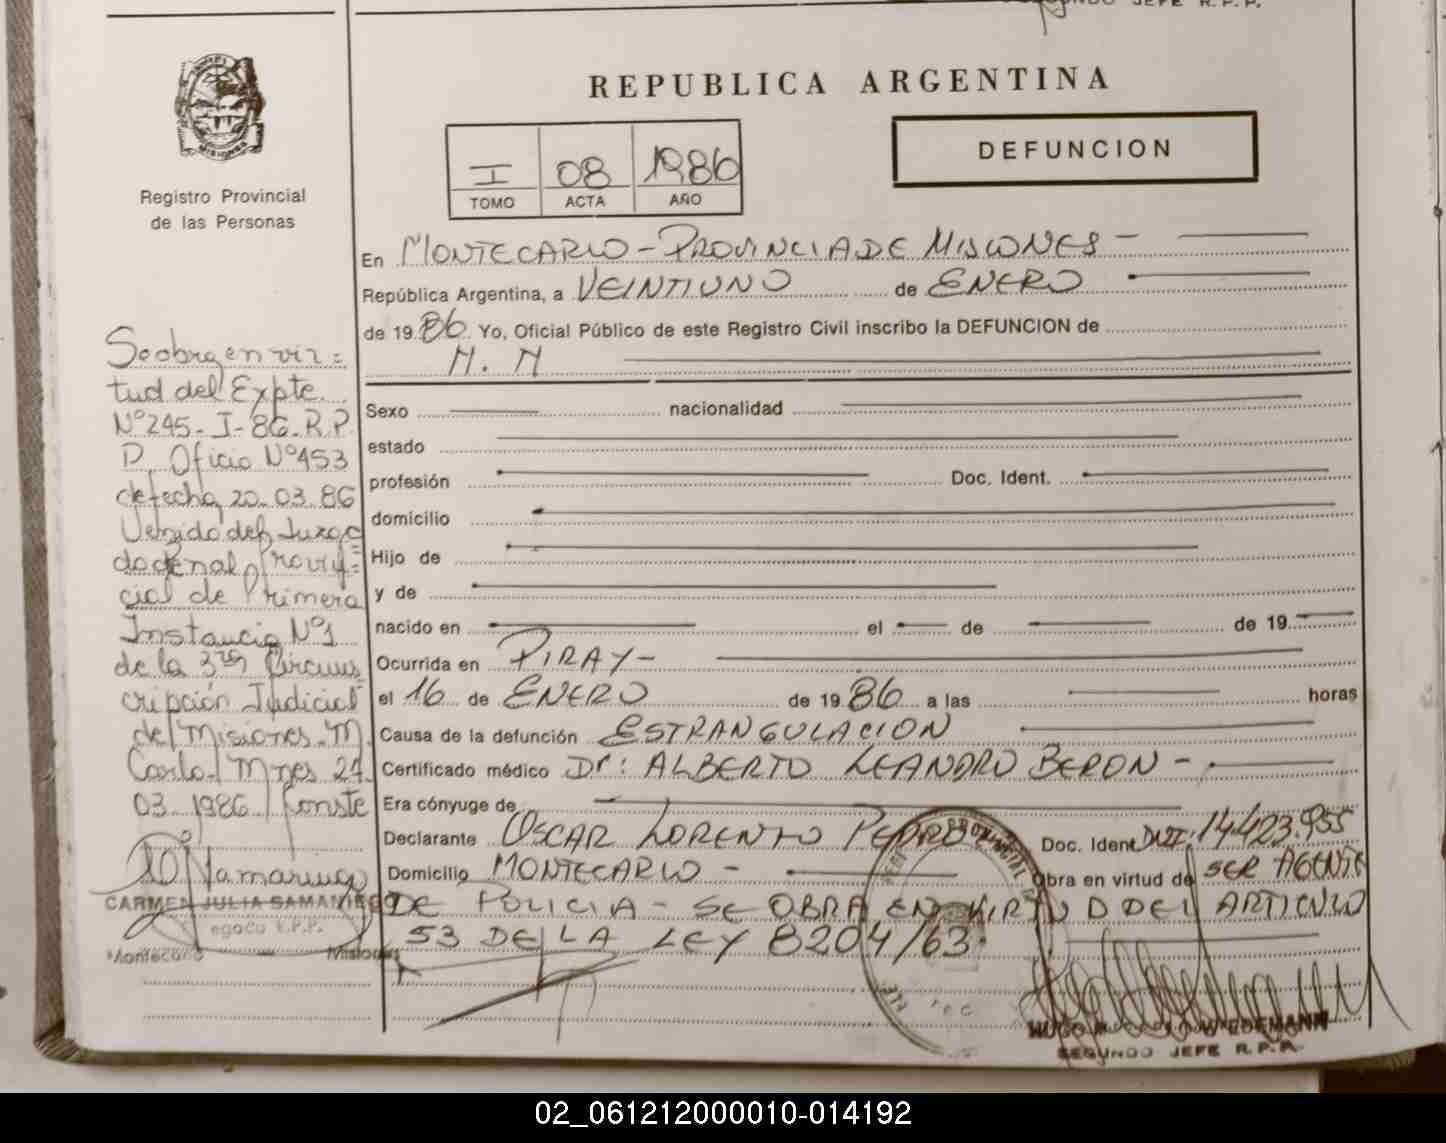 SEGUNDO JEFE R.P.P.
REPUBLICA ARGENTINA
DEFUNCION
I 08 1986
TOMO ACTA AÑO
Registro Provincial
de las Personas
En MONTECARLO - PROVINCIA DE MISIONES -
República Argentina, a VEINTIUNO de ENERO
de 1986 Yo, Oficial Público de este Registro Civil inscribo la DEFUNCION de
N. N
Sexo nacionalidad
estado
profesión Doc. Ident.
domicilio
Hijo de
y de
nacido en el de de 19
Ocurrida en PIRAY -
el 16 de ENERO de 1986 a las horas
Causa de la defunción ESTRANGULACION
Certificado médico Dr: ALBERTO LEANDRO BERON -
Era cónyuge de
Declarante OSCAR LORENZO Doc. Ident DNI: 14.423.955
Domicilio MONTECARLO - Obra en virtud de SER AGENTE
DE POLICIA - SE OBRA EN VIRTUD DEL ARTICULO
53 DE LA LEY 8204/63.
Se obra en vir=
tud del Expte.
Nº 245-I-86-R.P.
P. Oficio Nº 453
de fecha 20.03.86
Venido del Juzga
do Penal Provin=
cial de Primera
Instancia Nº1
de la 3ra Circuns
cripción Judicial
de Misiones. M.
Carlo, Mnes 24
03.1986. Conste
CARMEN JULIA SAMANIEGO
R.P.P.
Montecarlo Misiones
WIEDEMANN
SEGUNDO JEFE R.P.P.
02_061212000010-014192